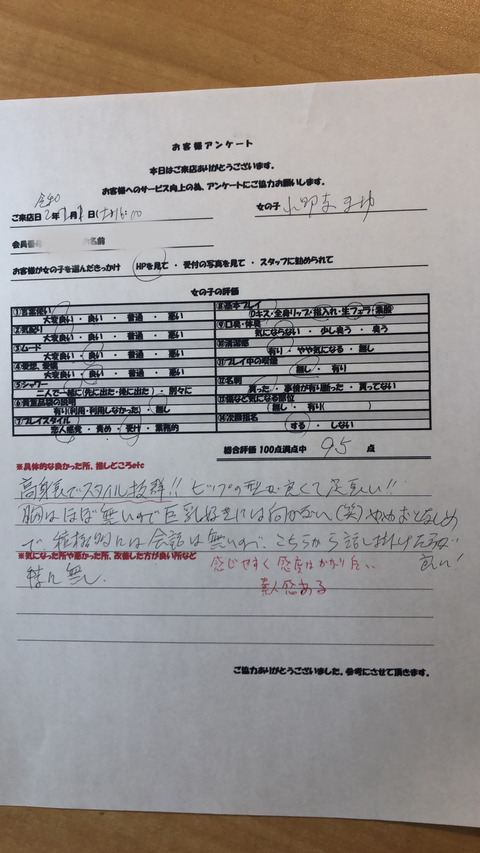 お客様アンケート
本日はご来店ありがとうございます。
お客様へのサービス向上の為、アンケートにご協力お願いします。
ご来店日 2年 月 日( ) 女の子
会員番号 名前
お客様が女の子を選んだきっかけ HPを見て ・ 受付の写真を見て ・ スタッフに勧められて
女の子の評価
①言葉使い
大変良い ・ 良い ・ 普通 ・ 悪い
②気配り
大変良い ・ 良い ・ 普通 ・ 悪い
③ムード
大変良い ・ 良い ・ 普通 ・ 悪い
④愛想、愛嬌
大変良い ・ 良い ・ 普通 ・ 悪い
⑤シャワー
二人で一緒(先に出た・後に出た) ・ 別々に
有り(利用・利用しなかった) ・ 無し
⑦プレイスタイル
恋人感覚 ・ 責め ・ 受け ・ 業務的
⑧基本プレイ
Dキス・全身リップ・指入れ・生フェラ・素股
⑨口臭・体臭
気にならない ・ 少し臭う ・ 臭う
⑩清潔感
有り ・ やや気になる ・ 無し
⑪プレイ中の喫煙
無し ・ 有り
⑫名刺
貰った ・ 事情が有り断った ・ 貰ってない
⑬傷など気になる部位
無し ・ 有り( )
⑭次回指名
する ・ しない
総合評価 100点満点中 95 点
※具体的な良かった所、推しどころetc
高身長でスタイル抜群!! ヒップの型が良くて足長い!!
胸はほぼ無いので巨乳好きには向かない(笑) ややおとなしめ
で 積極的には会話は無いので、こちらから話し掛けた方が
良い!
※気になった所や悪かった所、改善した方が良い所など
特に無し
感じやすく感度はかなり良い
素人感ある
ご協力ありがとうございました。参考にさせて頂きます。